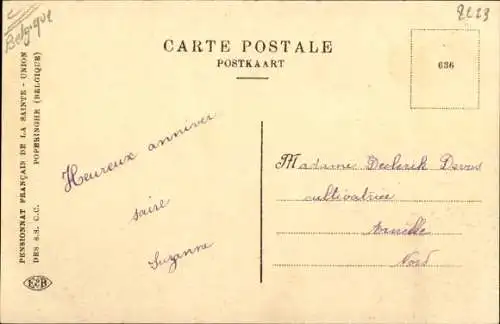 Belgique
2229
CARTE POSTALE
POSTKAART
636
PENSIONNAT FRANÇAIS DE LA SAINTE-UNION
DES S.S. C.C. POPERINGHE (BELGIQUE)
Heureux anniver
saire
Suzanne
Madame
cultivatrice
Nord